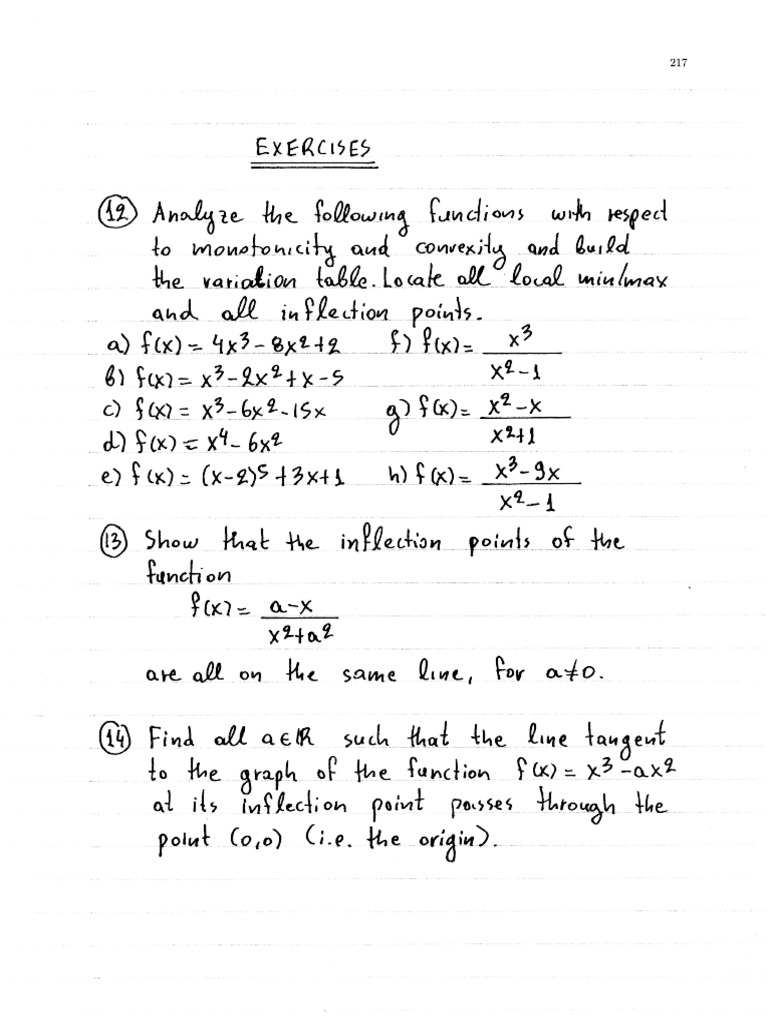 217
EXERCISES
(12) Analyze the following functions with respect
to monotonicity and convexity and build
the variation table. Locate all local min/max
and all inflection points.
a) f(x) = 4x³ - 8x² + 2 f) f(x) = x³ / (x² - 1)
b) f(x) = x³ - 2x² + x - 5
c) f(x) = x³ - 6x² - 15x g) f(x) = (x² - x) / (x² + 1)
d) f(x) = x⁴ - 6x²
e) f(x) = (x-2)⁵ + 3x + 1 h) f(x) = (x³ - 9x) / (x² - 1)
(13) Show that the inflection points of the
function
f(x) = (a - x) / (x² + a²)
are all on the same line, for a≠0.
(14) Find all a∈ℝ such that the line tangent
to the graph of the function f(x) = x³ - ax²
at its inflection point passes through the
point (0,0) (i.e. the origin).